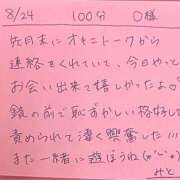 8/24 100分 O様
先月末にオキニトークから
連絡をくれていて、今日やっと
お会い出来て嬉しかったよ♡
鏡の前で恥ずかしい格好して
責められて凄く興奮した!!!
また一緒に遊ぼうね(*´∨`*)
みと